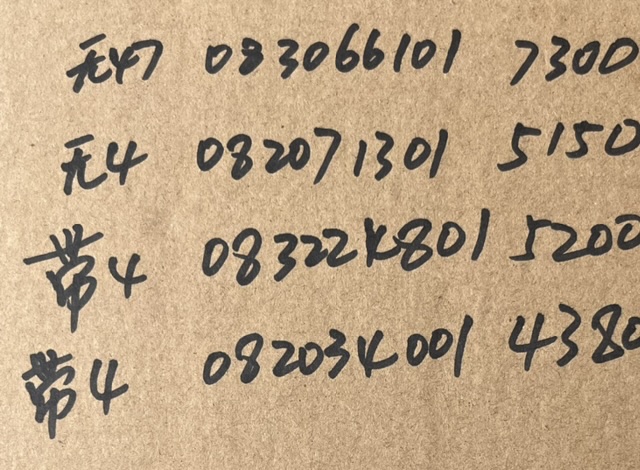 无47 083066101 7300
无4 082071301 5150
带4 083224801 5200
带4 082034001 4380